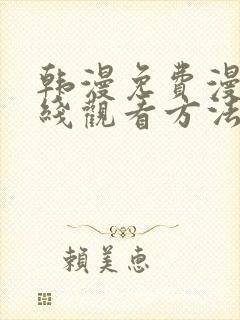 韩漫免費漫
綫觀看方法
賴美惠